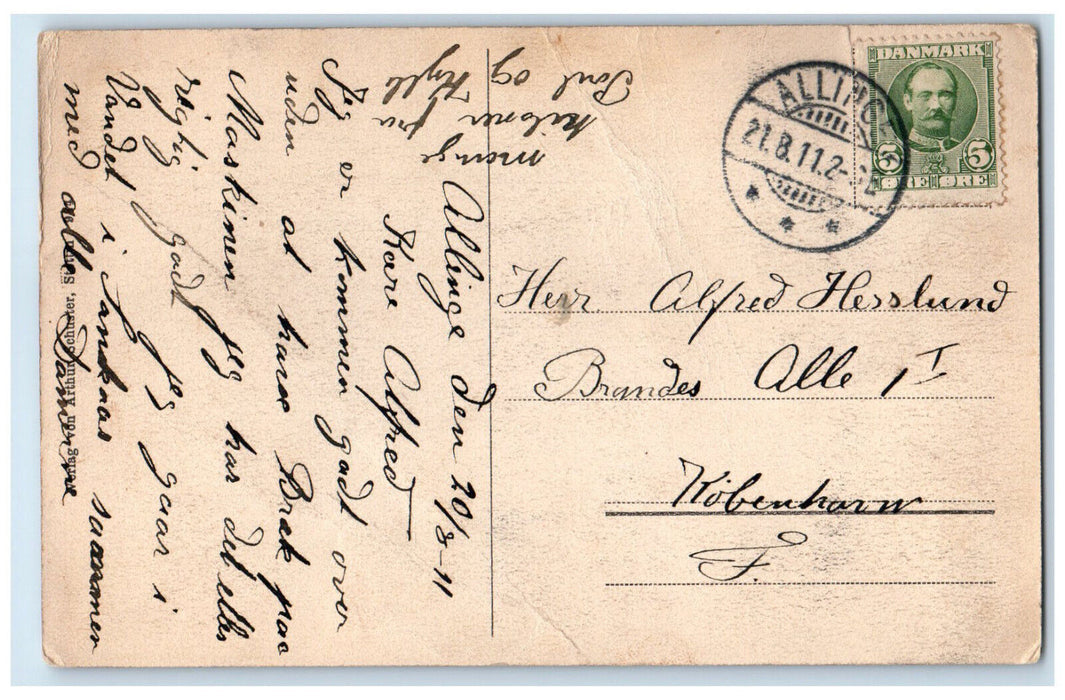 Allinge den 20/8-11
Kære Alfred
Jeg er kommen godt over
uden at have Bræk paa
Maskinen jeg har det ellers
rigtig godt jeg gaar i
Vandet i Sandkaas sammen
med alle Damerne
mange
hilsner fra
Poul og
DANMARK
5 5
ØRE ØRE
ALLINGE
21.8.11.2-
Herr. Alfred Hesslund
Brandes Alle 1 I
København
F.
Verlag von Arthur Schuster, Stettin